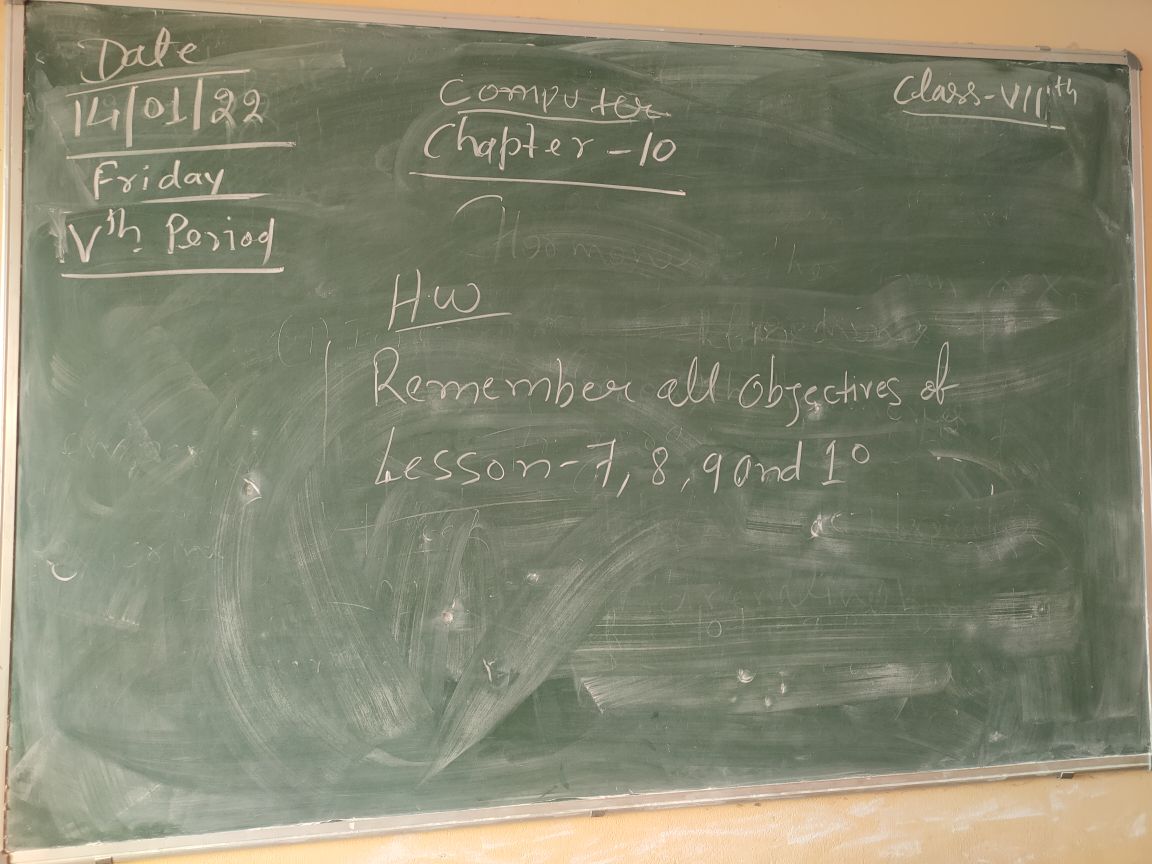 Date
14/01/22
Friday
Vth Period
Computer
Chapter-10
Class-VIIIth
H.W
Remember all Objectives of
Lesson-7, 8, 9 and 10